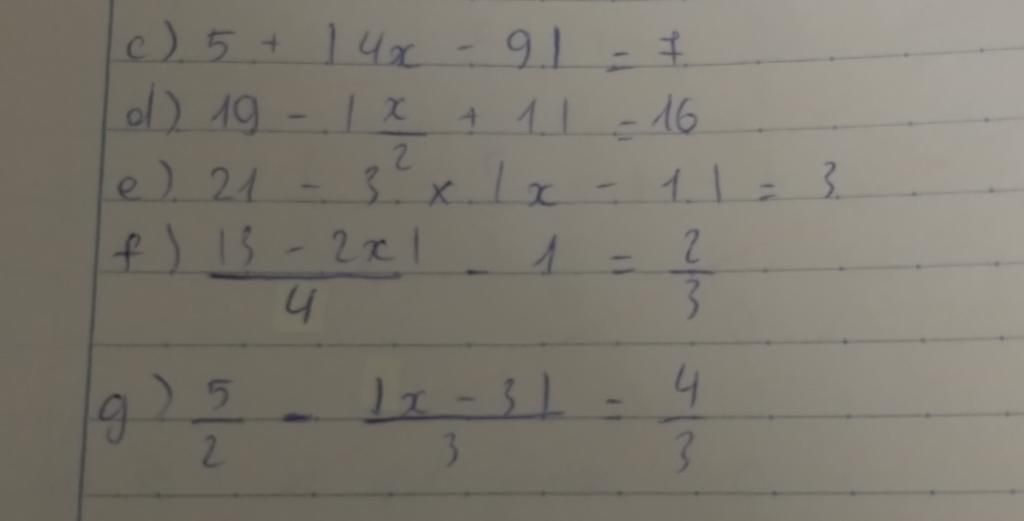 c) 5 + |4x - 9| = 7
d) 19 - |x/2 + 1| = 16
e) 21 - 3² x |x - 1| = 3
f) |3 - 2x|/4 - 1 = 2/3
g) 5/2 - |x - 3|/3 = 4/3